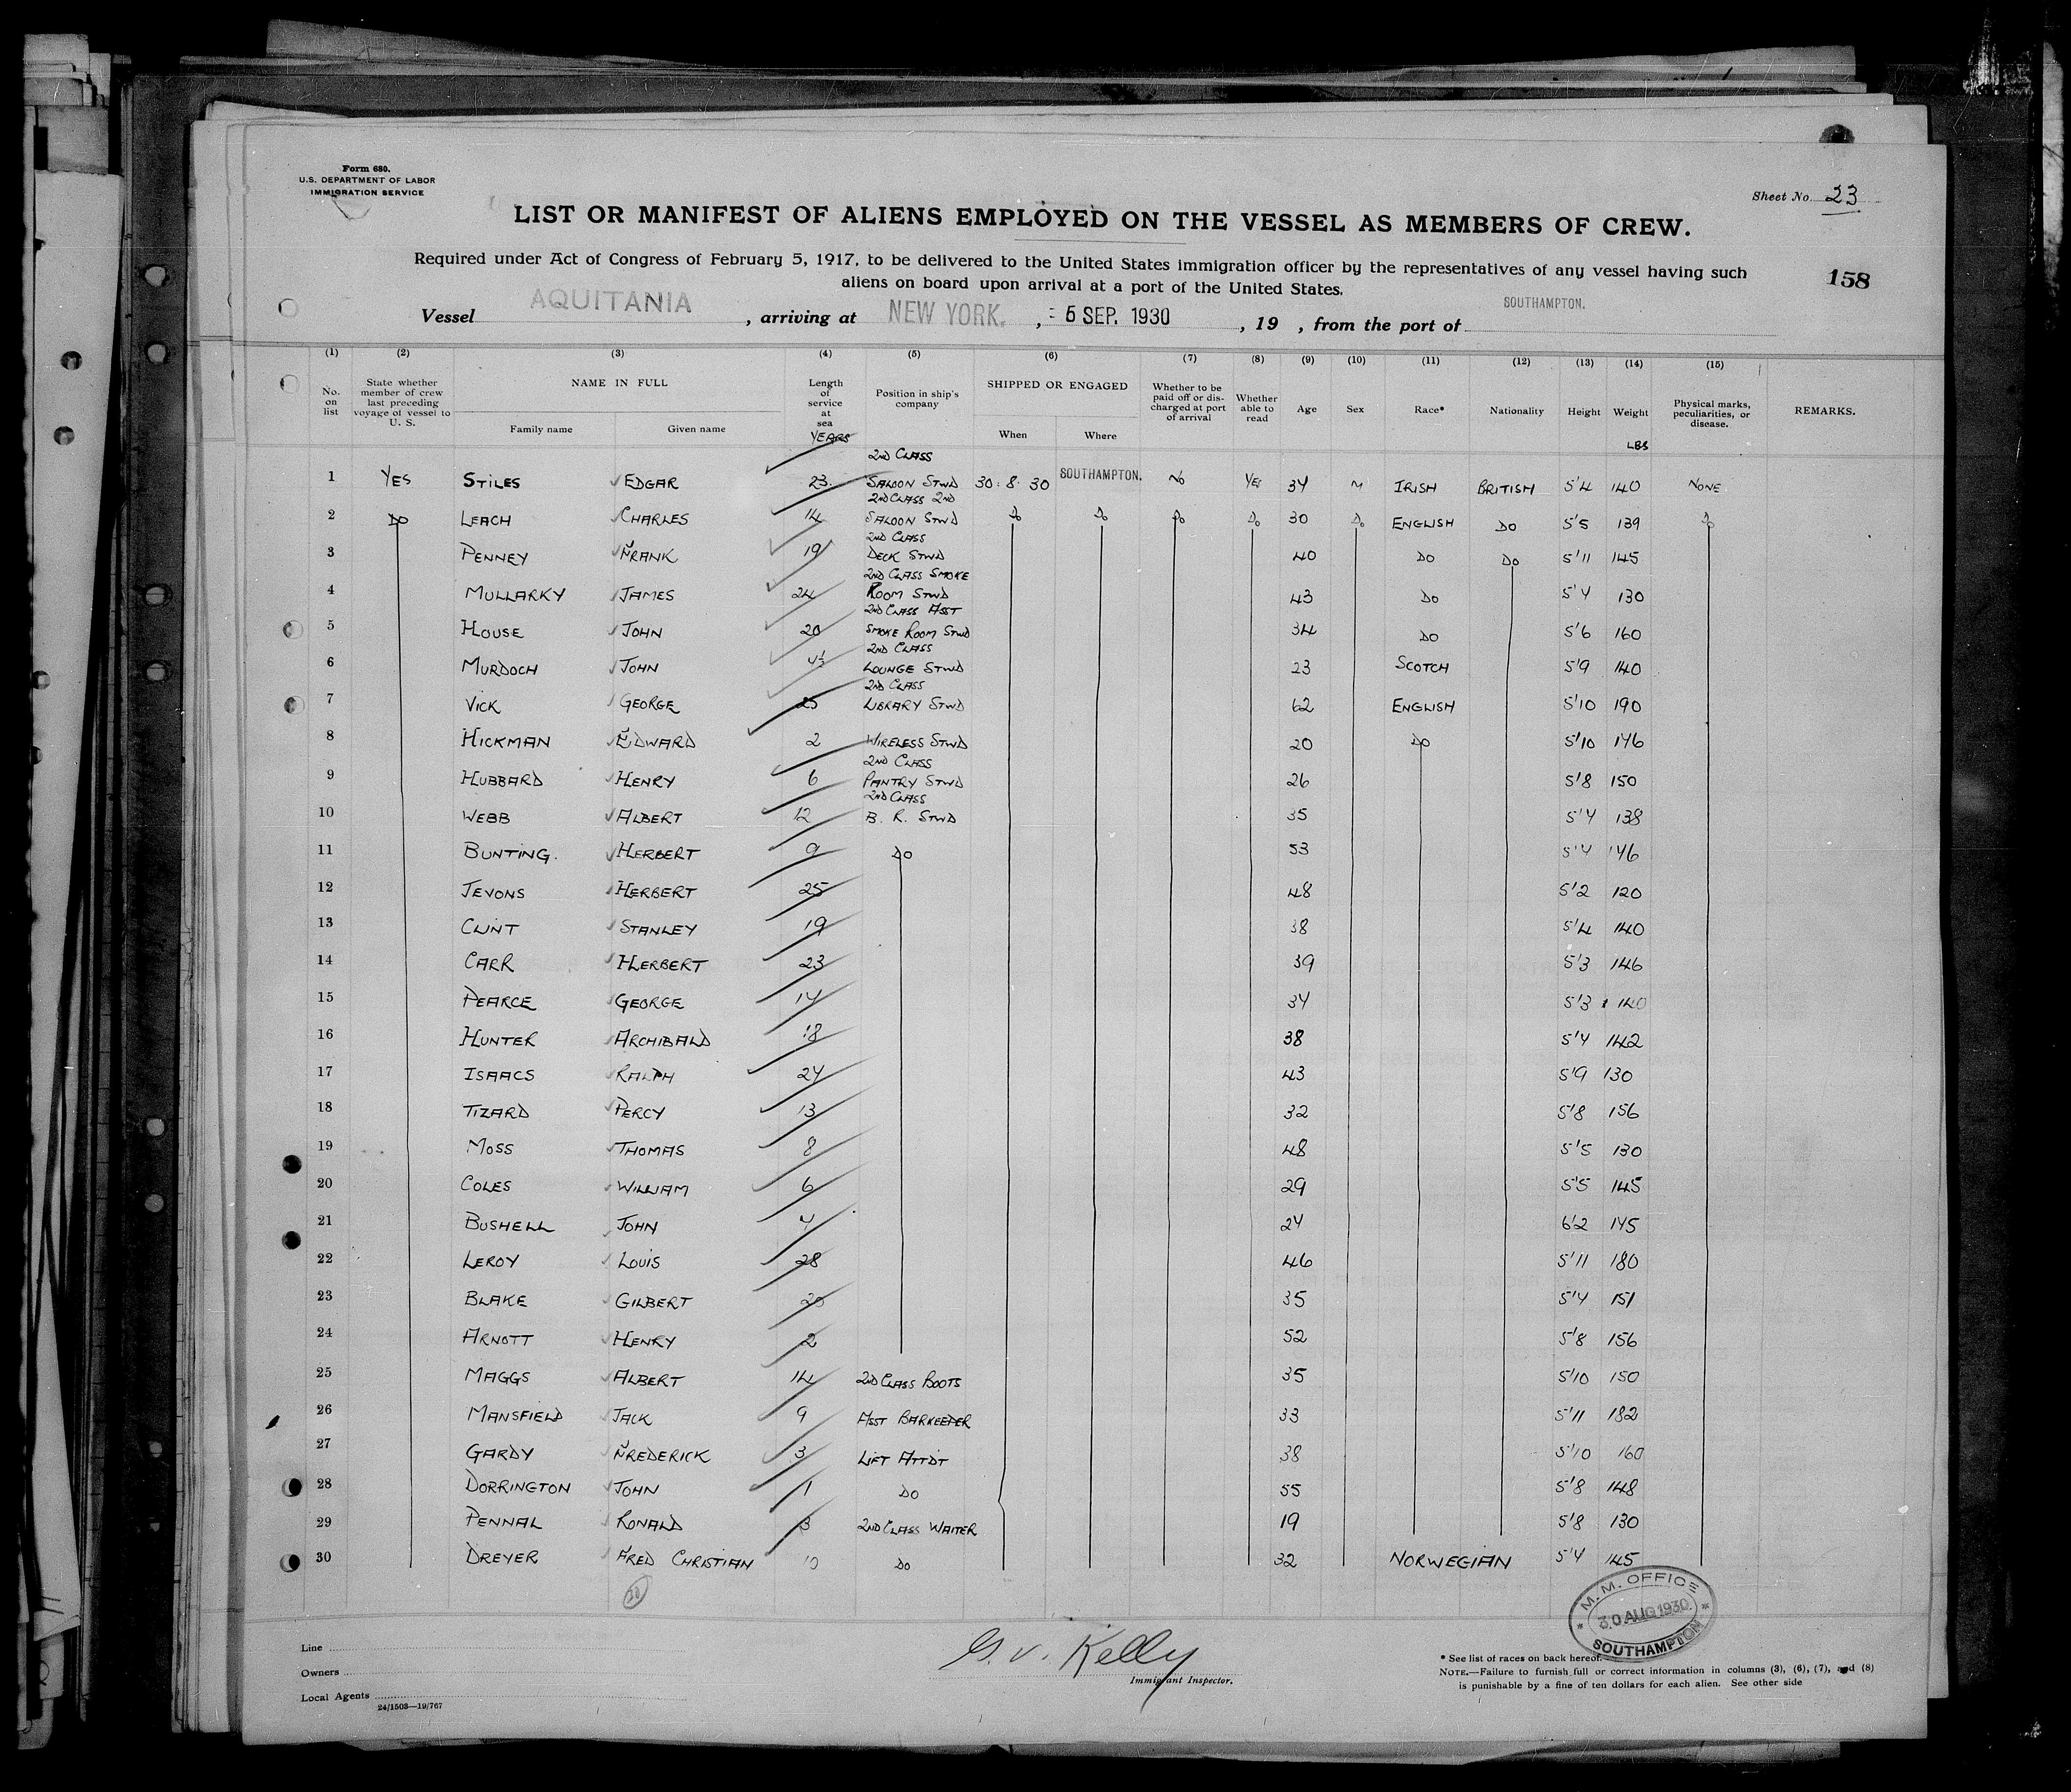 Form 680.
U.S. DEPARTMENT OF LABOR
IMMIGRATION SERVICE
Sheet No. 23
LIST OR MANIFEST OF ALIENS EMPLOYED ON THE VESSEL AS MEMBERS OF CREW.
Required under Act of Congress of February 5, 1917, to be delivered to the United States immigration officer by the representatives of any vessel having such
aliens on board upon arrival at a port of the United States.
158
Vessel AQUITANIA, arriving at NEW YORK., 5 SEP. 1930, 19 , from the port of SOUTHAMPTON.
(1) (2) (3) (4) (5) (6) (7) (8) (9) (10) (11) (12) (13) (14) (15)
No. on list State whether member of crew last preceding voyage of vessel to U. S. NAME IN FULL Family name Given name Length of service at sea YEARS Position in ship's company SHIPPED OR ENGAGED When Where Whether to be paid off or discharged at port of arrival Whether able to read Age Sex Race* Nationality Height Weight LBS Physical marks, peculiarities, or disease. REMARKS.
2ND CLASS
1 YES STILES EDGAR 23 SALOON STWD 30.8.30 SOUTHAMPTON. NO YES 34 M IRISH BRITISH 5'4 140 NONE
2ND CLASS 2ND
2 DO LEACH CHARLES 14 SALOON STWD DO DO DO DO 30 DO ENGLISH DO 5'5 139 DO
2ND CLASS
3 PENNEY FRANK 19 DECK STWD 40 DO DO 5'11 145
2ND CLASS SMOKE
4 MULLARKY JAMES 24 ROOM STWD 43 DO 5'4 130
2ND CLASS ASST
5 HOUSE JOHN 20 SMOKE ROOM STWD 34 DO 5'6 160
2ND CLASS
6 MURDOCH JOHN 4½ LOUNGE STWD 23 SCOTCH 5'9 140
2ND CLASS
7 VICK GEORGE 25 LIBRARY STWD 62 ENGLISH 5'10 190
8 HICKMAN EDWARD 2 WIRELESS STWD 20 DO 5'10 146
2ND CLASS
9 HUBBARD HENRY 6 PANTRY STWD 26 5'8 150
2ND CLASS
10 WEBB ALBERT 12 B. R. STWD 35 5'4 138
11 BUNTING. HERBERT 9 DO 53 5'4 146
12 JEVONS HERBERT 25 48 5'2 120
13 CLINT STANLEY 19 38 5'4 140
14 CARR HERBERT 23 39 5'3 146
15 PEARCE GEORGE 14 34 5'3 140
16 HUNTER ARCHIBALD 18 38 5'4 142
17 ISAACS RALPH 24 43 5'9 130
18 TIZARD PERCY 13 32 5'8 156
19 MOSS THOMAS 8 48 5'5 130
20 COLES WILLIAM 6 29 5'5 145
21 BUSHELL JOHN 4 24 6'2 145
22 LEROY LOUIS 28 46 5'11 180
23 BLAKE GILBERT 20 35 5'4 151
24 ARNOTT HENRY 2 52 5'8 156
25 MAGGS ALBERT 14 2ND CLASS BOOTS 35 5'10 150
26 MANSFIELD JACK 9 ASST BARKEEPER 33 5'11 182
27 GARDY FREDERICK 3 LIFT ATTDT 38 5'10 160
28 DORRINGTON JOHN 1 DO 55 5'8 148
29 PENNAL RONALD 3 2ND CLASS WAITER 19 5'8 130
30 DREYER FRED CHRISTIAN 10 DO 32 NORWEGIAN 5'4 145
30
M. M. OFFICE
30 AUG 1930
SOUTHAMPTON
Line
Owners
Local Agents
24/1503—19/767
G. V. Kelly
Immigrant Inspector.
* See list of races on back hereof.
NOTE.—Failure to furnish full or correct information in columns (3), (6), (7), and (8)
is punishable by a fine of ten dollars for each alien. See other side